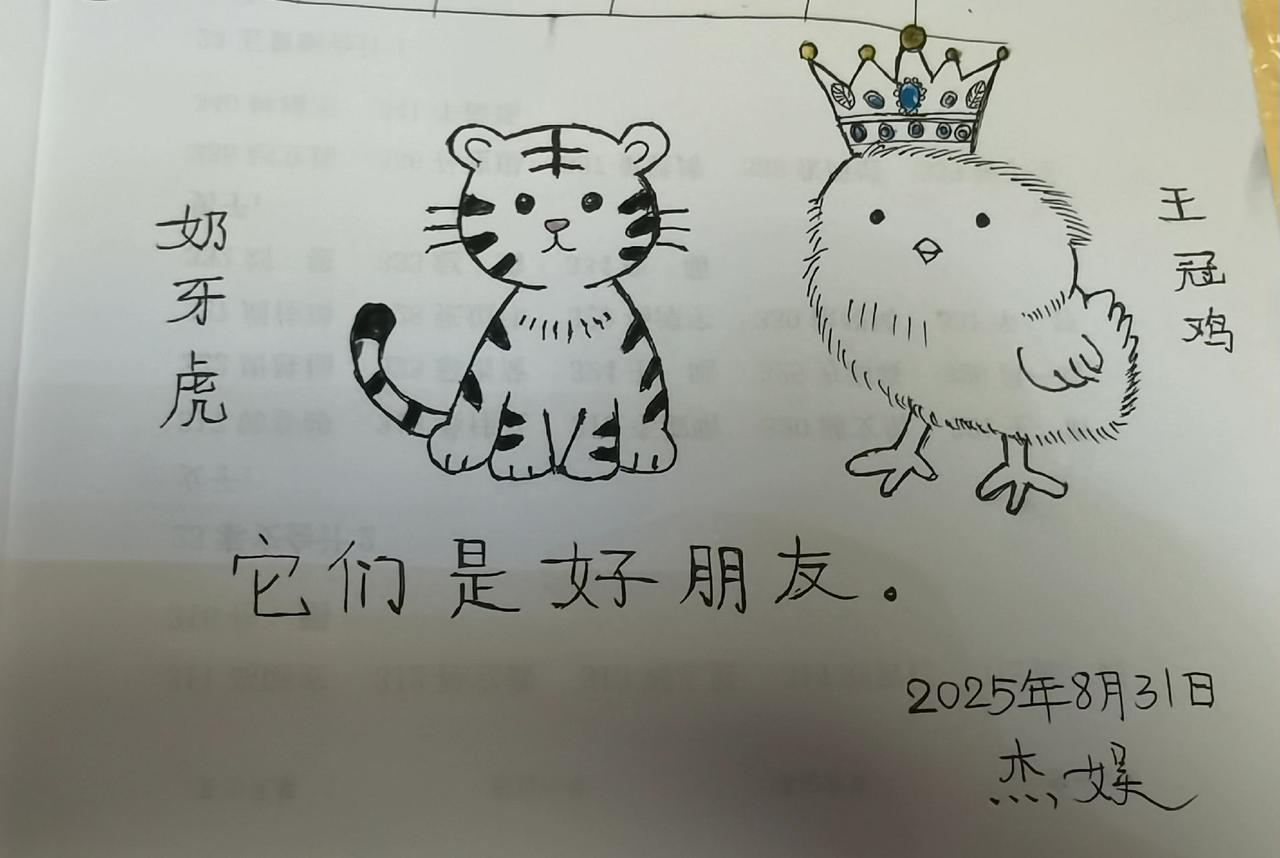 奶牙虎
王冠鸡
它们是好朋友.
2025年8月31日
杰娱